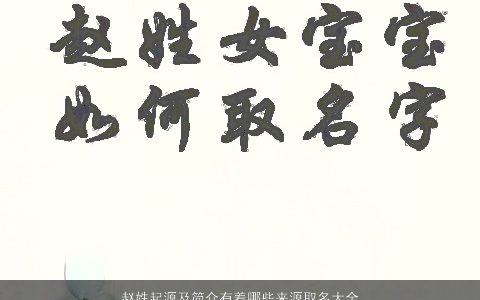 赵姓女宝宝
如何取名字
赵姓起源及简介有着哪些来源取名大全